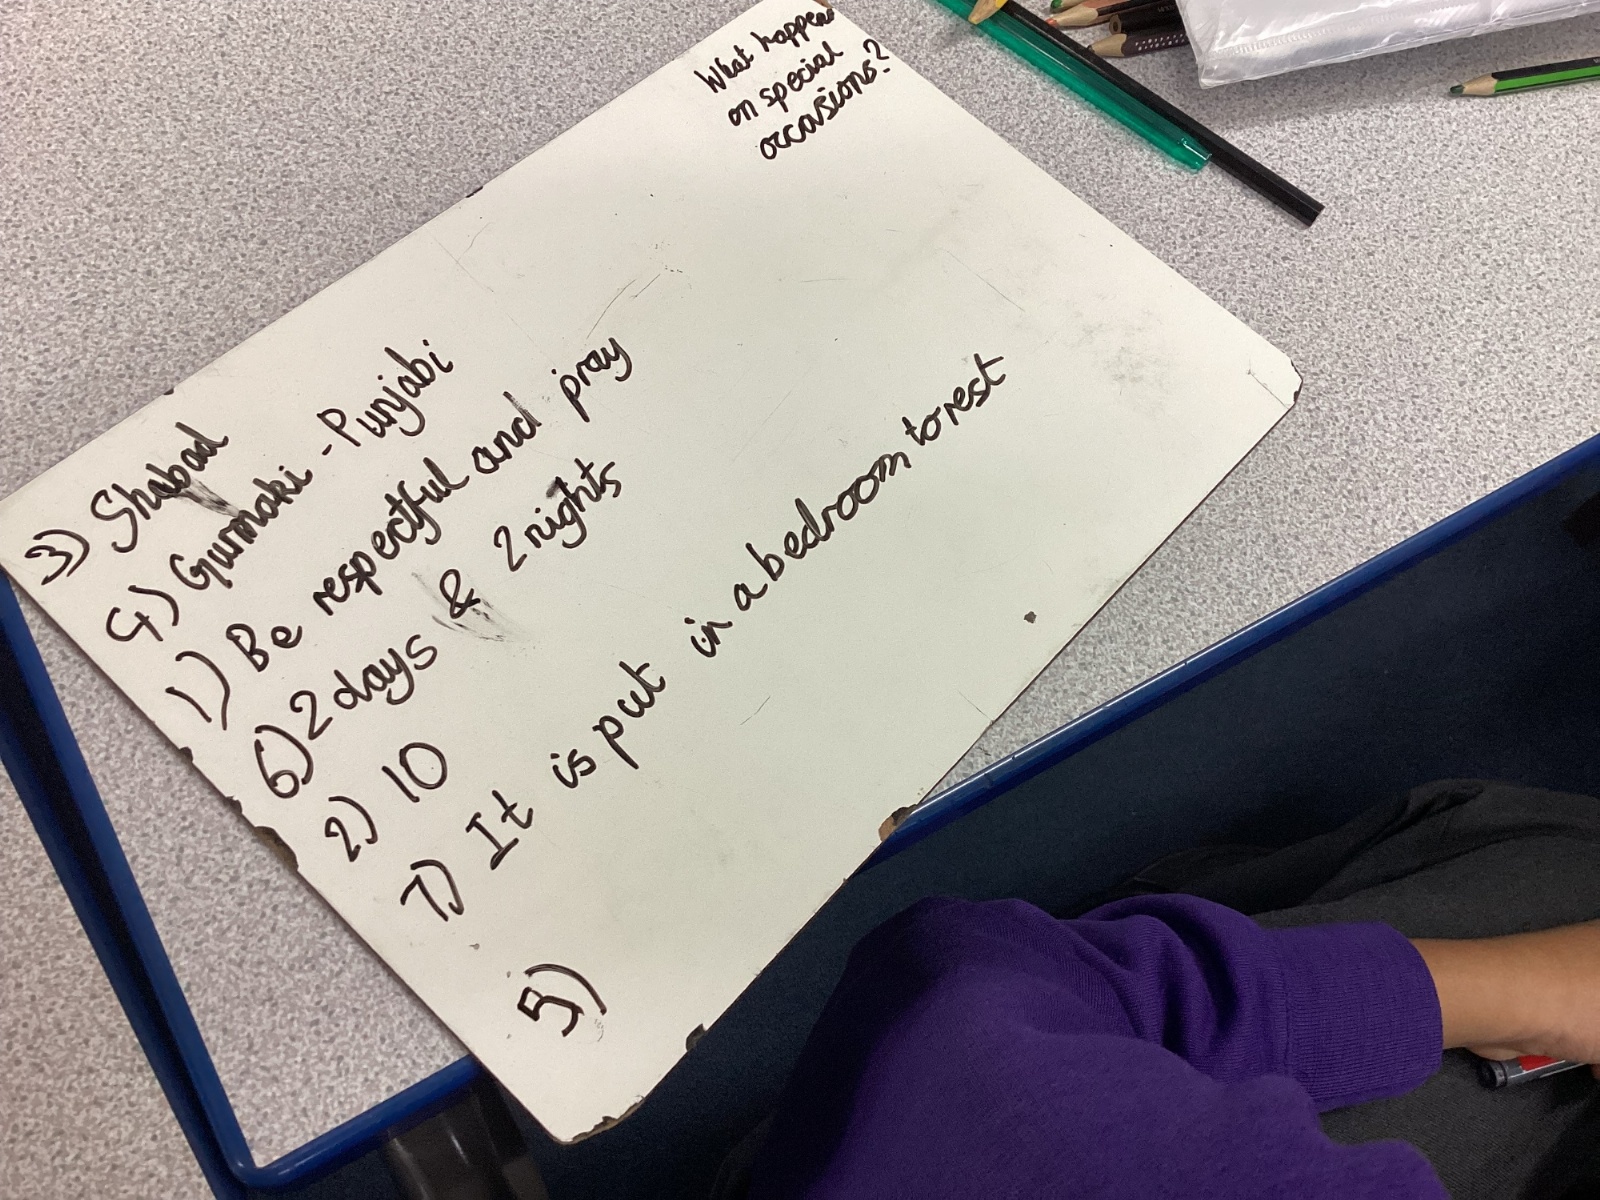 What happens
on special
occasions?
3) Shabad
4) Gurmaki - Punjabi
1) Be respectful and pray
6) 2 days & 2 nights
2) 10
7) It is put in a bedroom to rest
5)